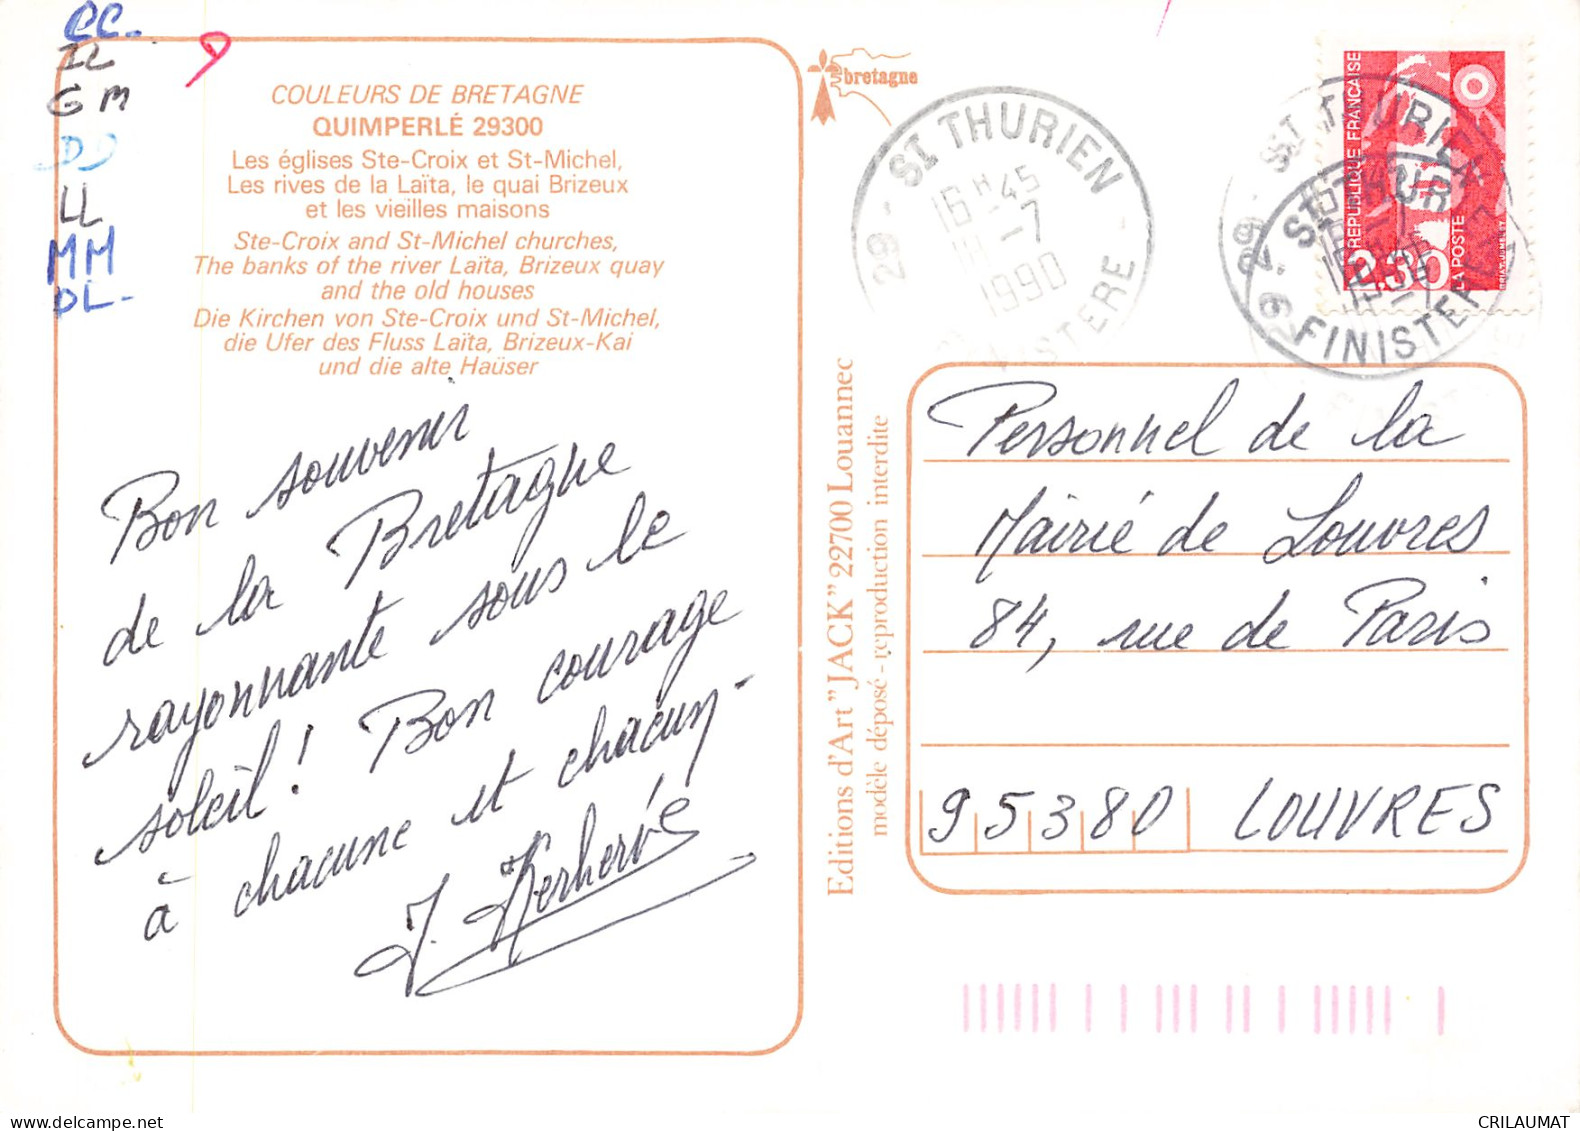 CC-
IL
GM
DD
LL
MM
DL-
COULEURS DE BRETAGNE
QUIMPERLÉ 29300
Les églises Ste-Croix et St-Michel,
Les rives de la Laïta, le quai Brizeux
et les vieilles maisons
Ste-Croix and St-Michel churches,
The banks of the river Laïta, Brizeux quay
and the old houses
Die Kirchen von Ste-Croix und St-Michel,
die Ufer des Fluss Laïta, Brizeux-Kai
und die alte Haüser
Bon souvenir
de la Bretagne
rayonnante sous le
soleil! Bon courage
à chacune et chacun-
J. Kerhervé
bretagne
29 - ST THURIEN -
16H45
-7
1990
FINISTERE
REPUBLIQUE FRANÇAISE
2.30
LA POSTE
ST THURIEN
FINISTERE
Editions d'Art "JACK" 22700 Louannec
modèle déposé - reproduction interdite
Personnel de la
Mairie de Louvres
84, rue de Paris
95380 LOUVRES
CRILAUMAT